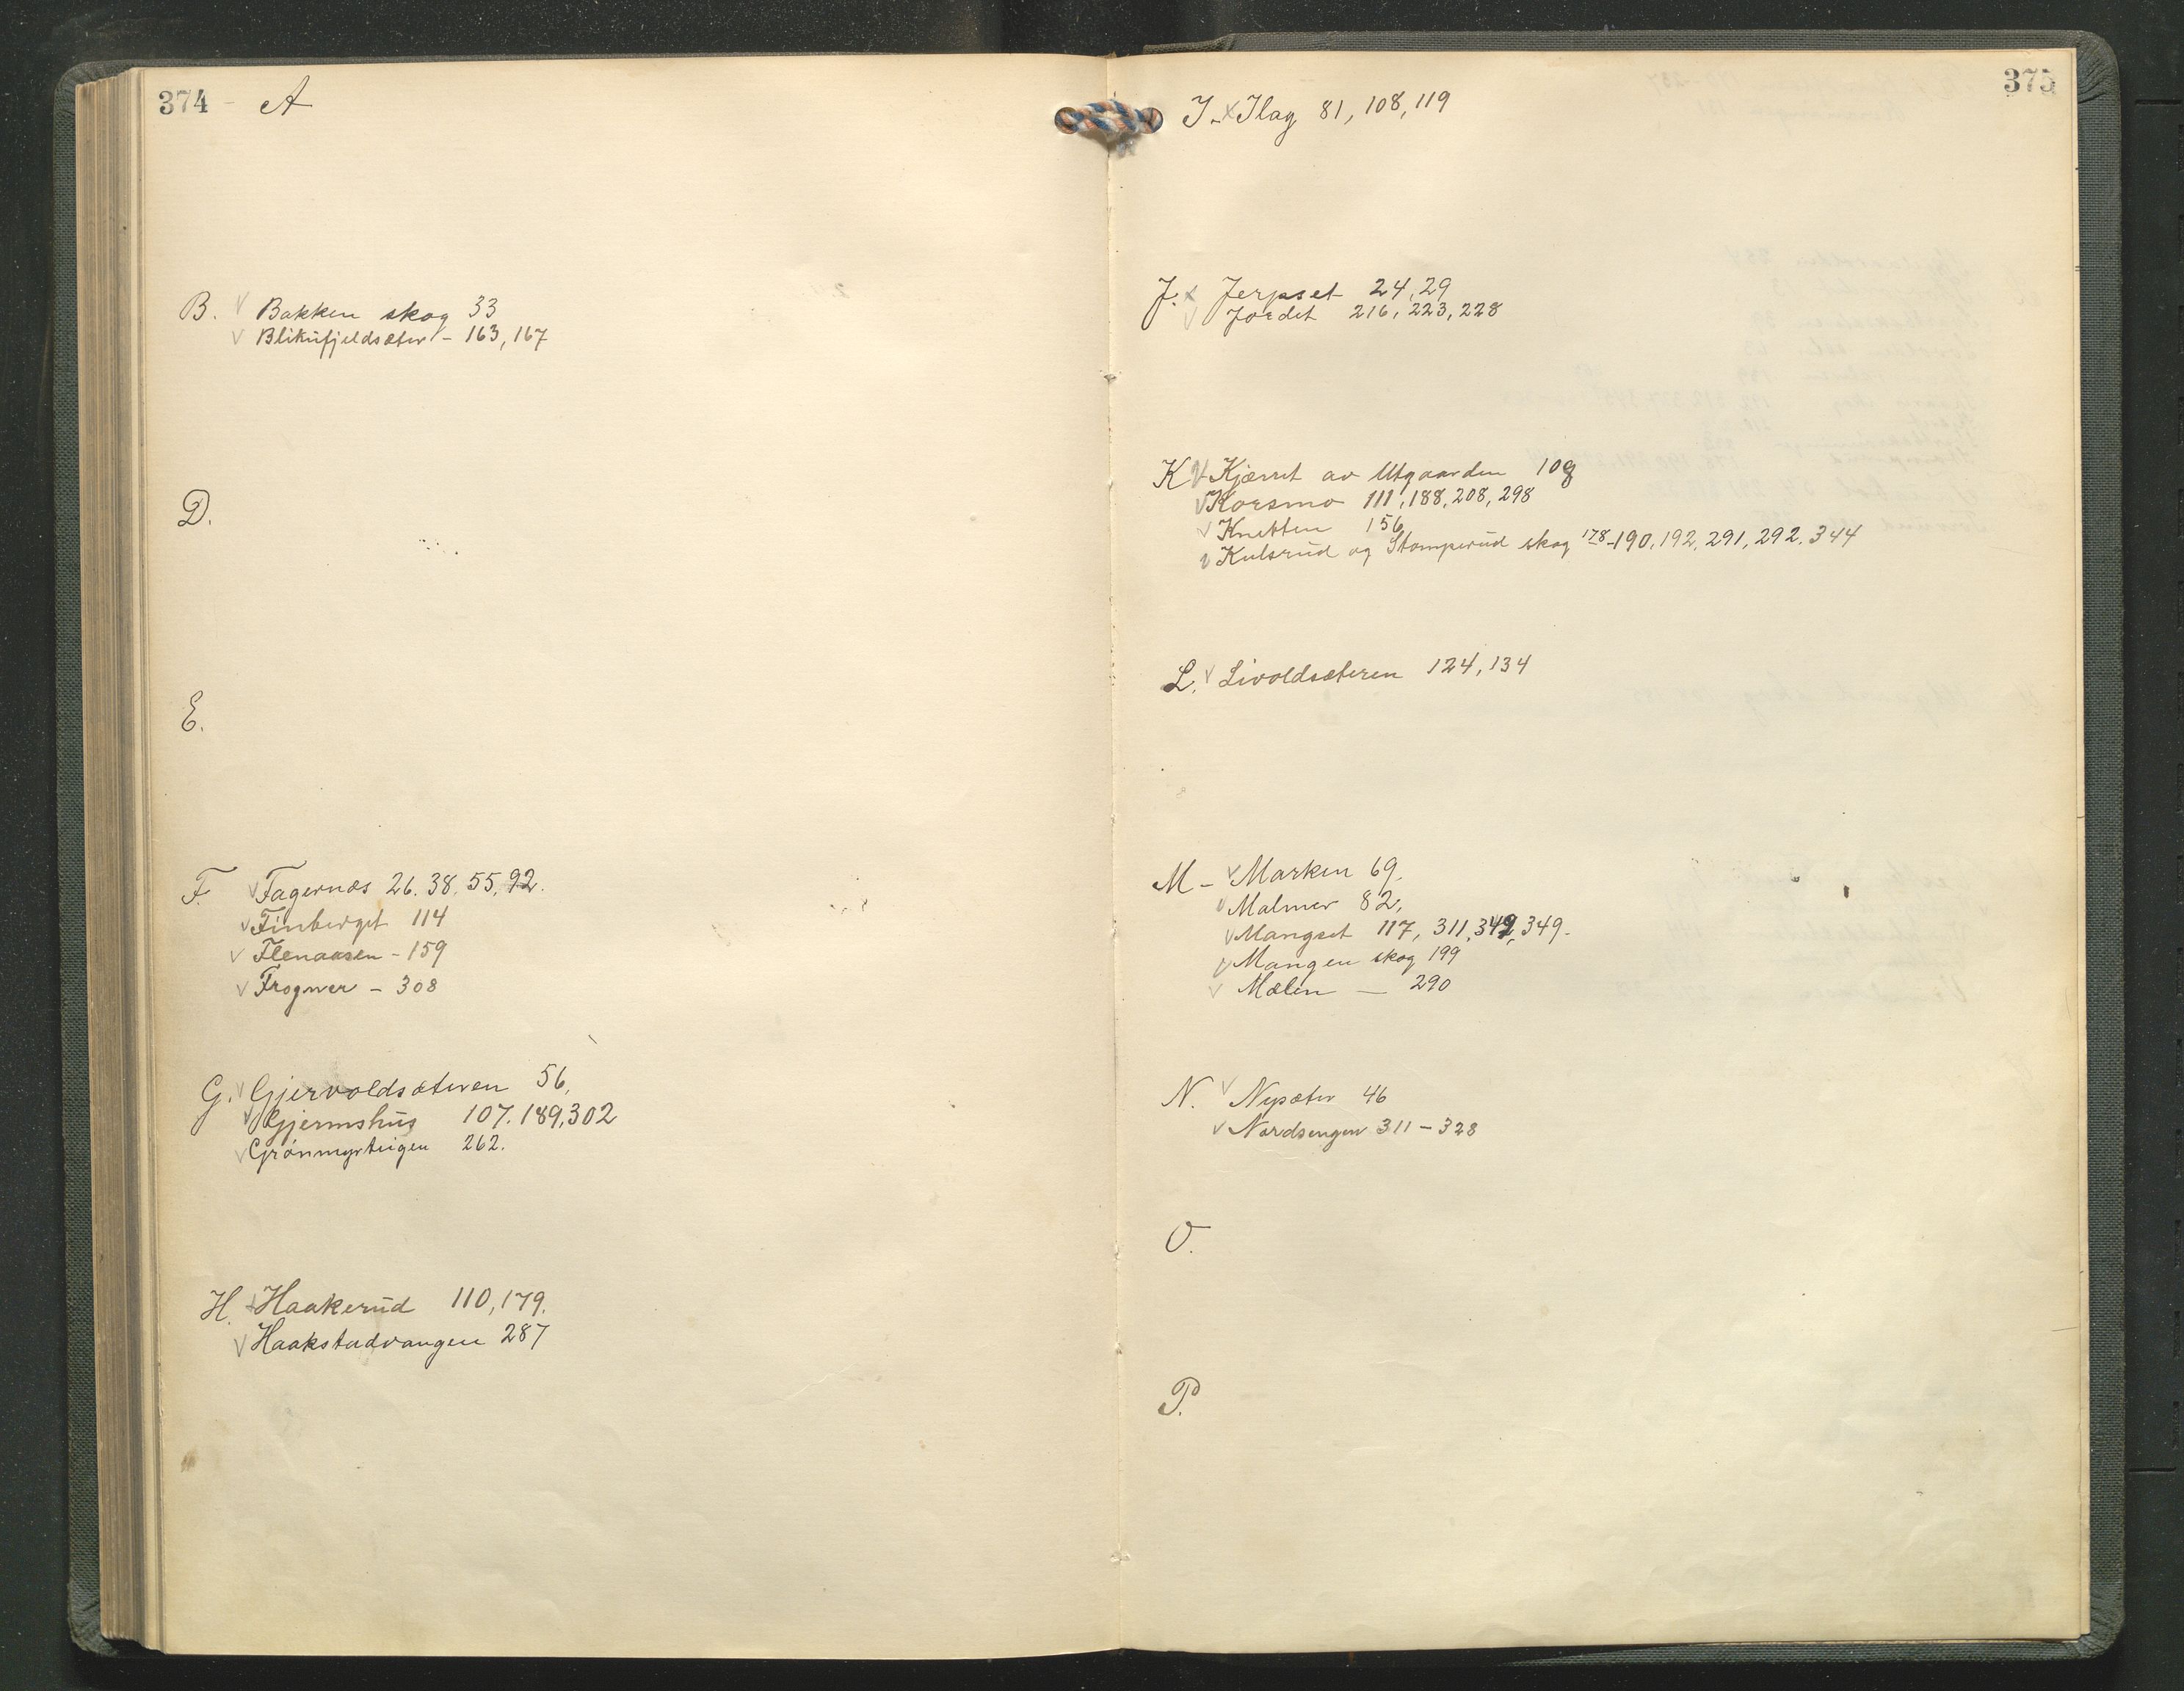 374 - A
B. V Bakken skog 33
V Blikufjeldsæter - 163, 167
D.
E.
F. V Fagernæs 26. 38. 55, 92.
V Finberget 114
V Flenaasen - 159
V Frogner - 308
G. V Gjervoldsæteren 56,
V Gjermshus 107. 189, 302
V Grönmyrteigen 262.
H. V Haakerud 110, 179.
V Haakstadvangen 287
375
I - x Ilag 81, 108, 119
J. x Jerpset 24, 29
V Jordet 216, 223, 228
K V Kjærret av Utgaarden 109
V Korsmo 111, 188, 208, 298
V Knetten 156
V Kulsrud og Stomperud skog 178-190, 192, 291, 292, 344
L. V Livoldsæteren 124, 134
M - V Marken 69.
V Malmer 82,
V Mangset 117, 311, 349.
V Mangen skog 199
V Mælen - 290
N. V Nysæter 46
V Nordsengen 311 - 328
O.
P.